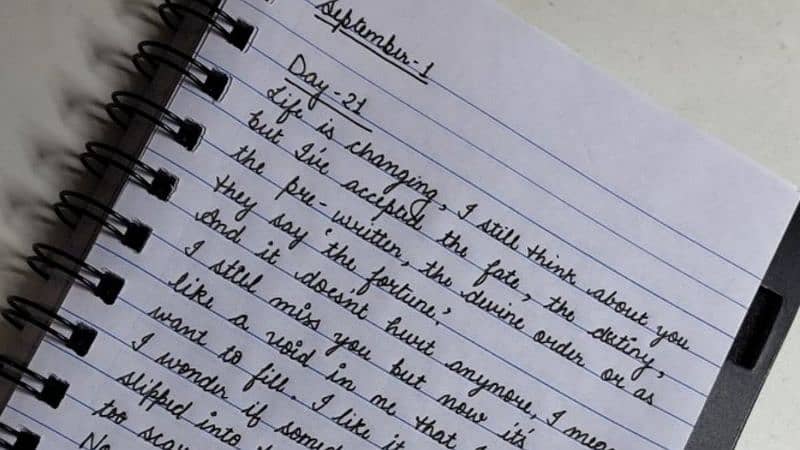 September-1
Day-21
Life is changing, I still think about you
but I've accepted the fate, the detiny,
the pre-written, the devine order or as
they say 'the fortune.'
And it doesnt hurt anymore, I mean
I still miss you but now it's
like a void in me that I
want to fill. I like it
I wonder if
slipped into
too
No